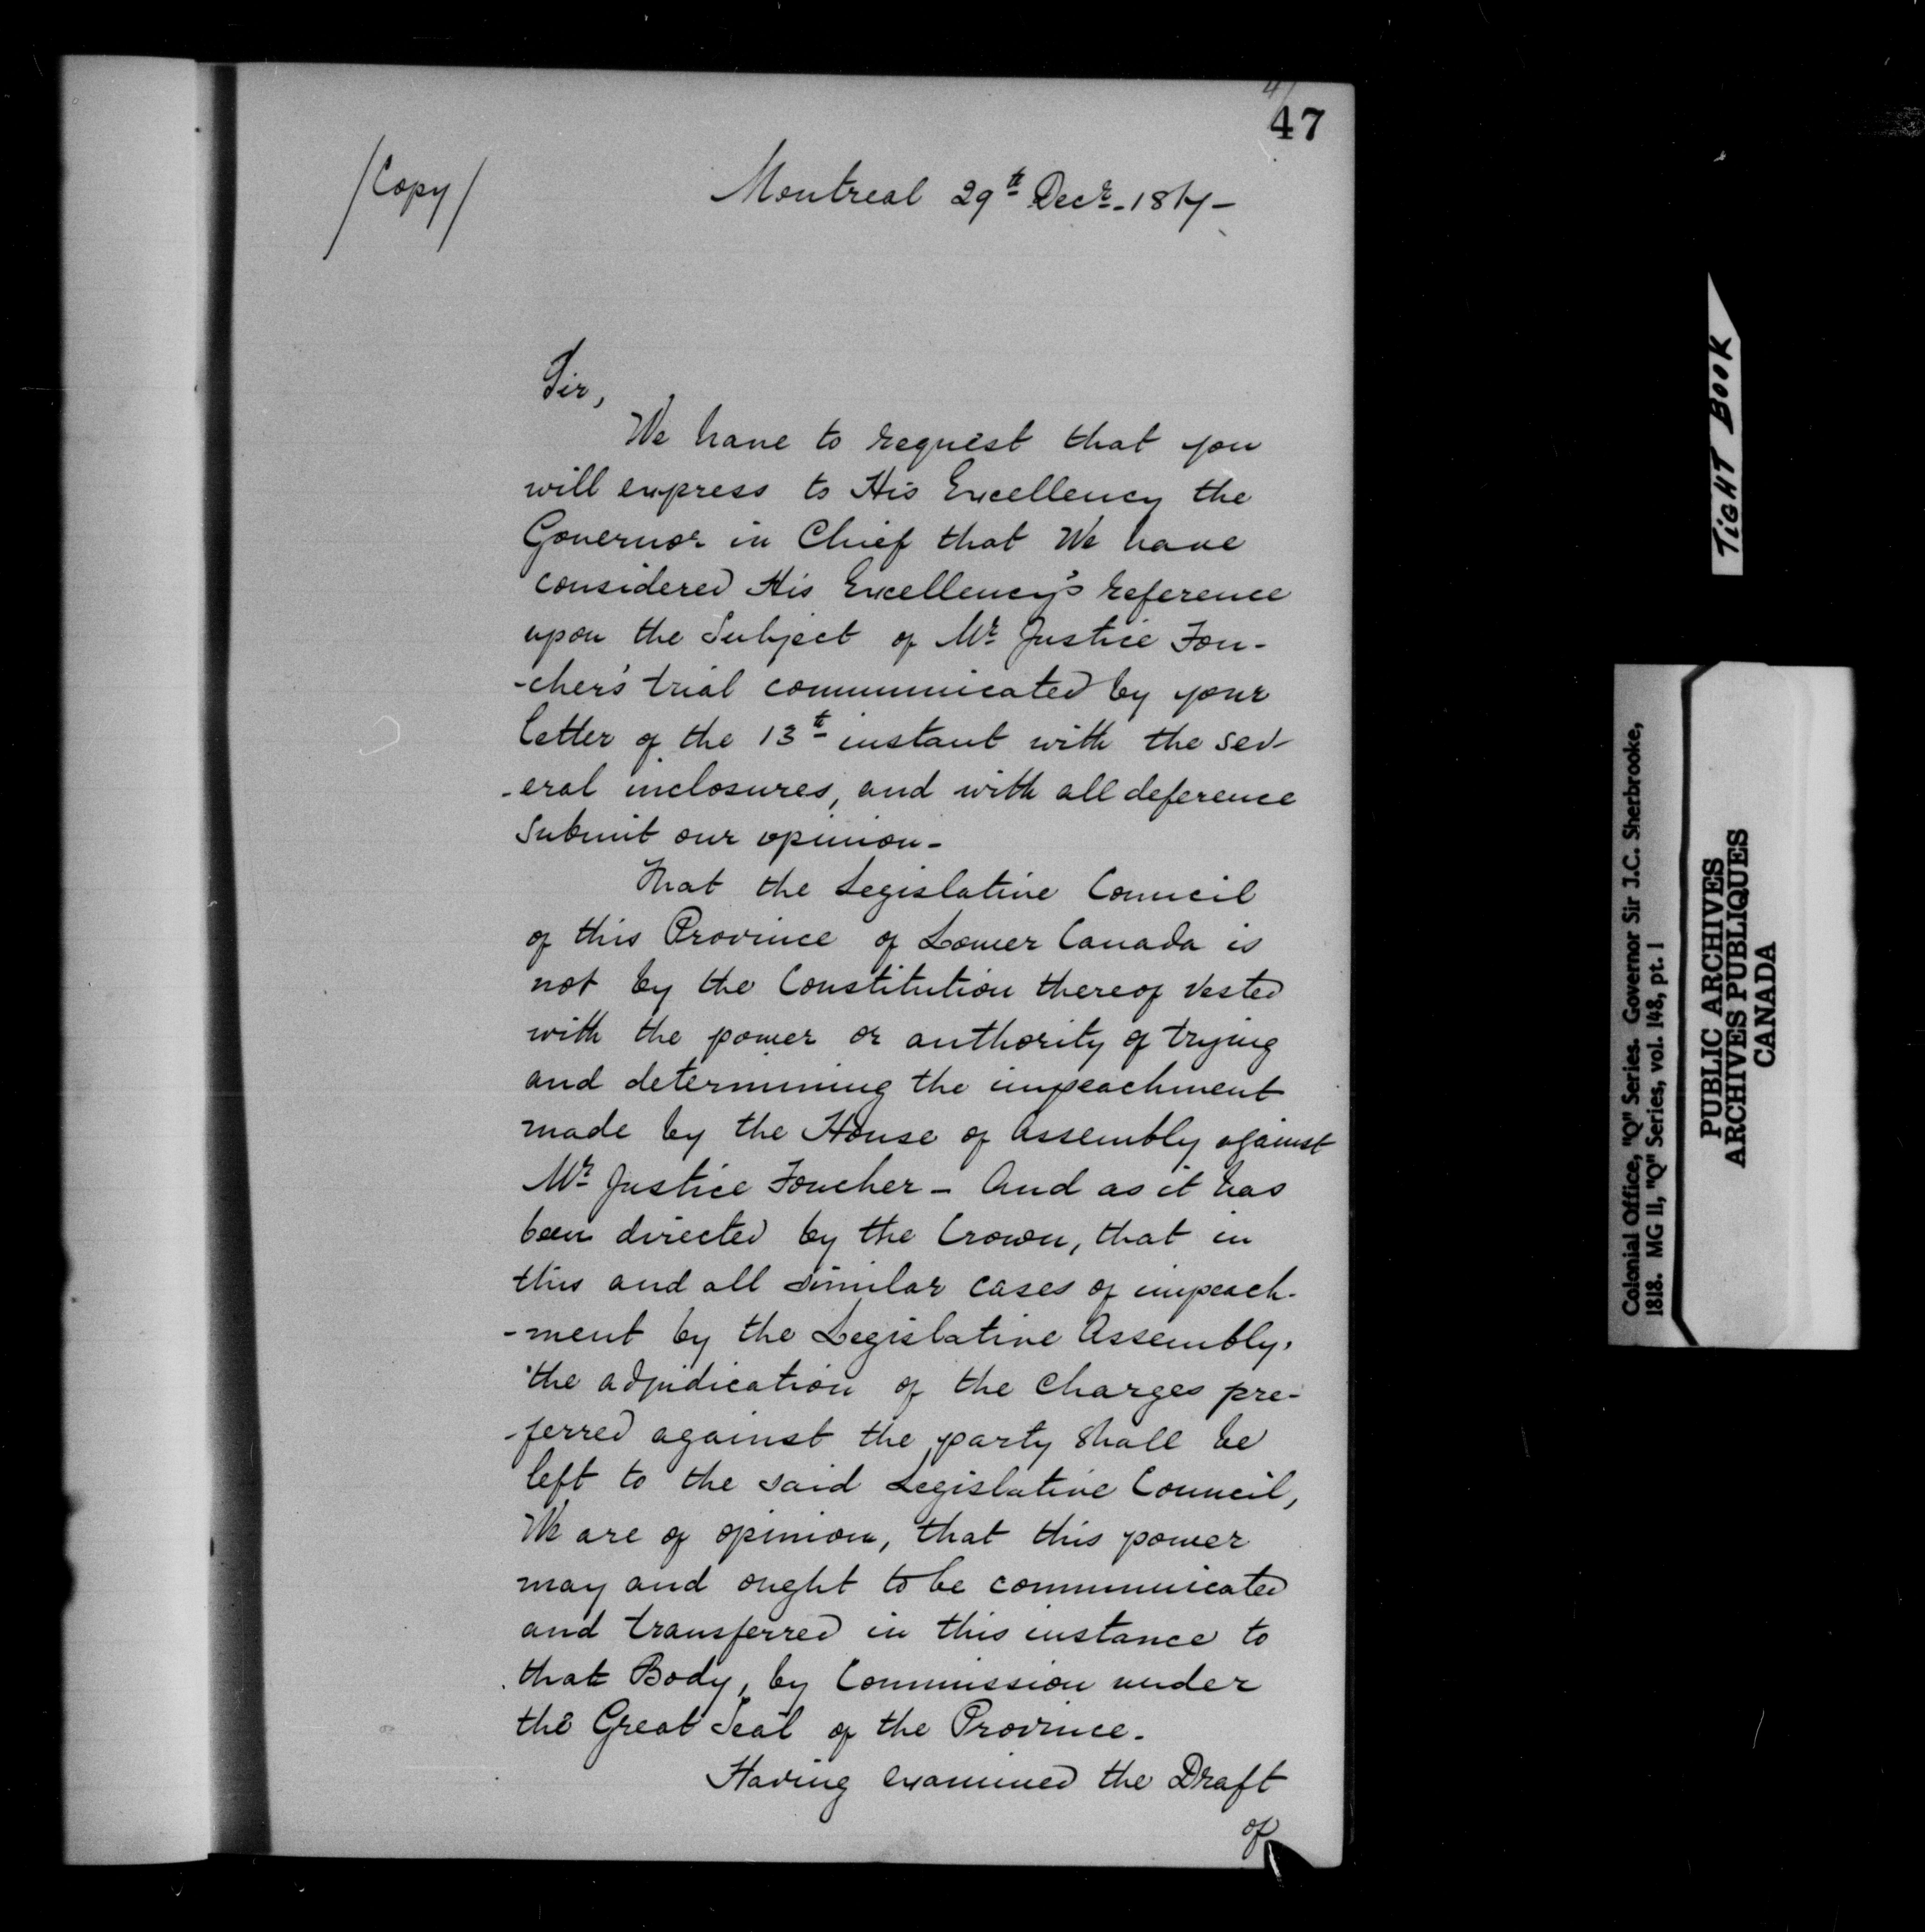 47
/Copy/
Montreal 29th Decr. 1817 -
Sir,
We have to request that you
will express to His Excellency the
Governor in Chief that We have
considered His Excellency's reference
upon the Subject of Mr Justice Fou-
-cher's trial communicated by your
letter of the 13th instant with the sev-
-eral inclosures, and with all deference
Submit our opinion -
That the Legislative Council
of this Province of Lower Canada is
not by the Constitution thereof vested
with the power or authority of trying
and determining the impeachment
made by the House of Assembly against
Mr Justice Foucher - And as it has
been directed by the Crown, that in
this and all similar cases of impeach-
-ment by the Legislative Assembly,
the adjudication of the charges pre-
-ferred against the party shall be
left to the said Legislative Council,
We are of opinion, that this power
may and ought to be communicated
and transferred in this instance to
that Body, by Commission under
the Great Seal of the Province.
Having examined the Draft
of
TIGHT BOOK
Colonial Office, "Q" Series. Governor Sir J.C. Sherbrooke,
1818. MG 11, "Q" Series, vol. 148, pt. 1
PUBLIC ARCHIVES
ARCHIVES PUBLIQUES
CANADA